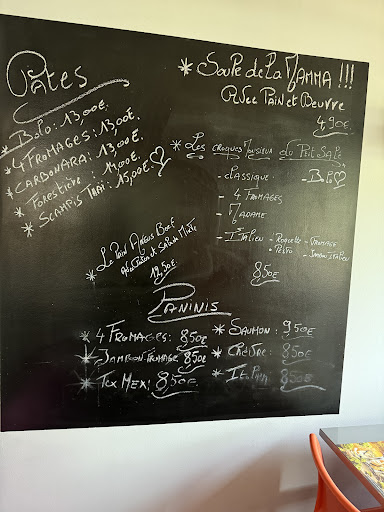 Pâtes
* Bolo: 13,00€.
* 4 Fromages: 13,00€.
* Carbonara: 13,00€.
* Forestière: 14,00€.
* Scampis Thaï: 15,00€.
* Soupe de La Mamma !!!
Avec Pain et Beurre
4,90€.
* Les croques Monsieur du P'tit Salé
- Classique
- Bolo
- 4 Fromages
- Madame
- Italien
• Roquette
- Fromage
• Pesto
- Jambon italien
8,50€
* Le Pain Angus Boeuf
12,50€.
Paninis
* 4 Fromages: 8,50€
* Jambon-Fromage 8,50€
* Tex Mex: 8,50€
* Saumon: 9,50€
* Chèvre: 8,50€
* 8,50€